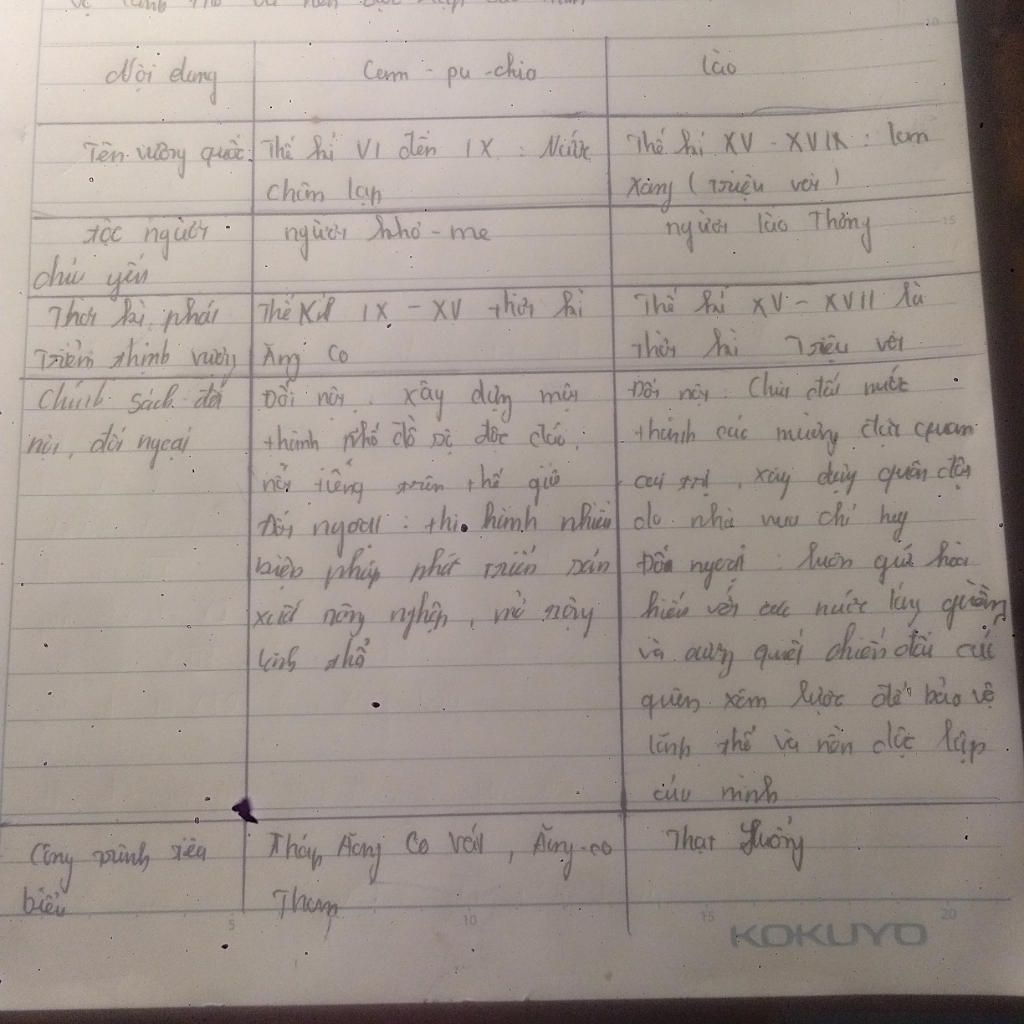 Nội dung
Cam - pu - chia
Lào
Tên vương quốc:
Thế kỉ VI đến IX : Nước
Chân lạp
Thế kỉ XV - XVIX : lan
Xang ( Triệu voi )
tộc người
chủ yếu
người khơ - me
người lào Thơng
Thời kì phát
Triển thịnh vượng
Thế kỉ IX - XV thời kì
Ăng Co
Thế kỉ XV - XVII là
Thời kì Triệu voi
Chính sách đối
nội, đối ngoại
Đối nội : xây dựng một
thành phố đồ sộ độc đáo,
nổi tiếng trên thế giới
Đối ngoại : thi hành nhiều
biện pháp phát triển sản
xuất nông nghiệp, mở rộng
lãnh thổ
Đối nội : Chia đất nước
thành các mường đặt quan
cai trị, xây dựng quân đội
do nhà vua chỉ huy
Đối ngoại : luôn giữ hòa
hiếu với các nước láng giềng
và cương quyết chiến đấu
quân xâm lược để bảo vệ
lãnh thổ và nền độc lập
của mình
Công trình tiêu
biểu
Tháp Ăng Co Vát, Ăng-co
Thom
Thạt Luổng
5 10 15 20
KOKUYO